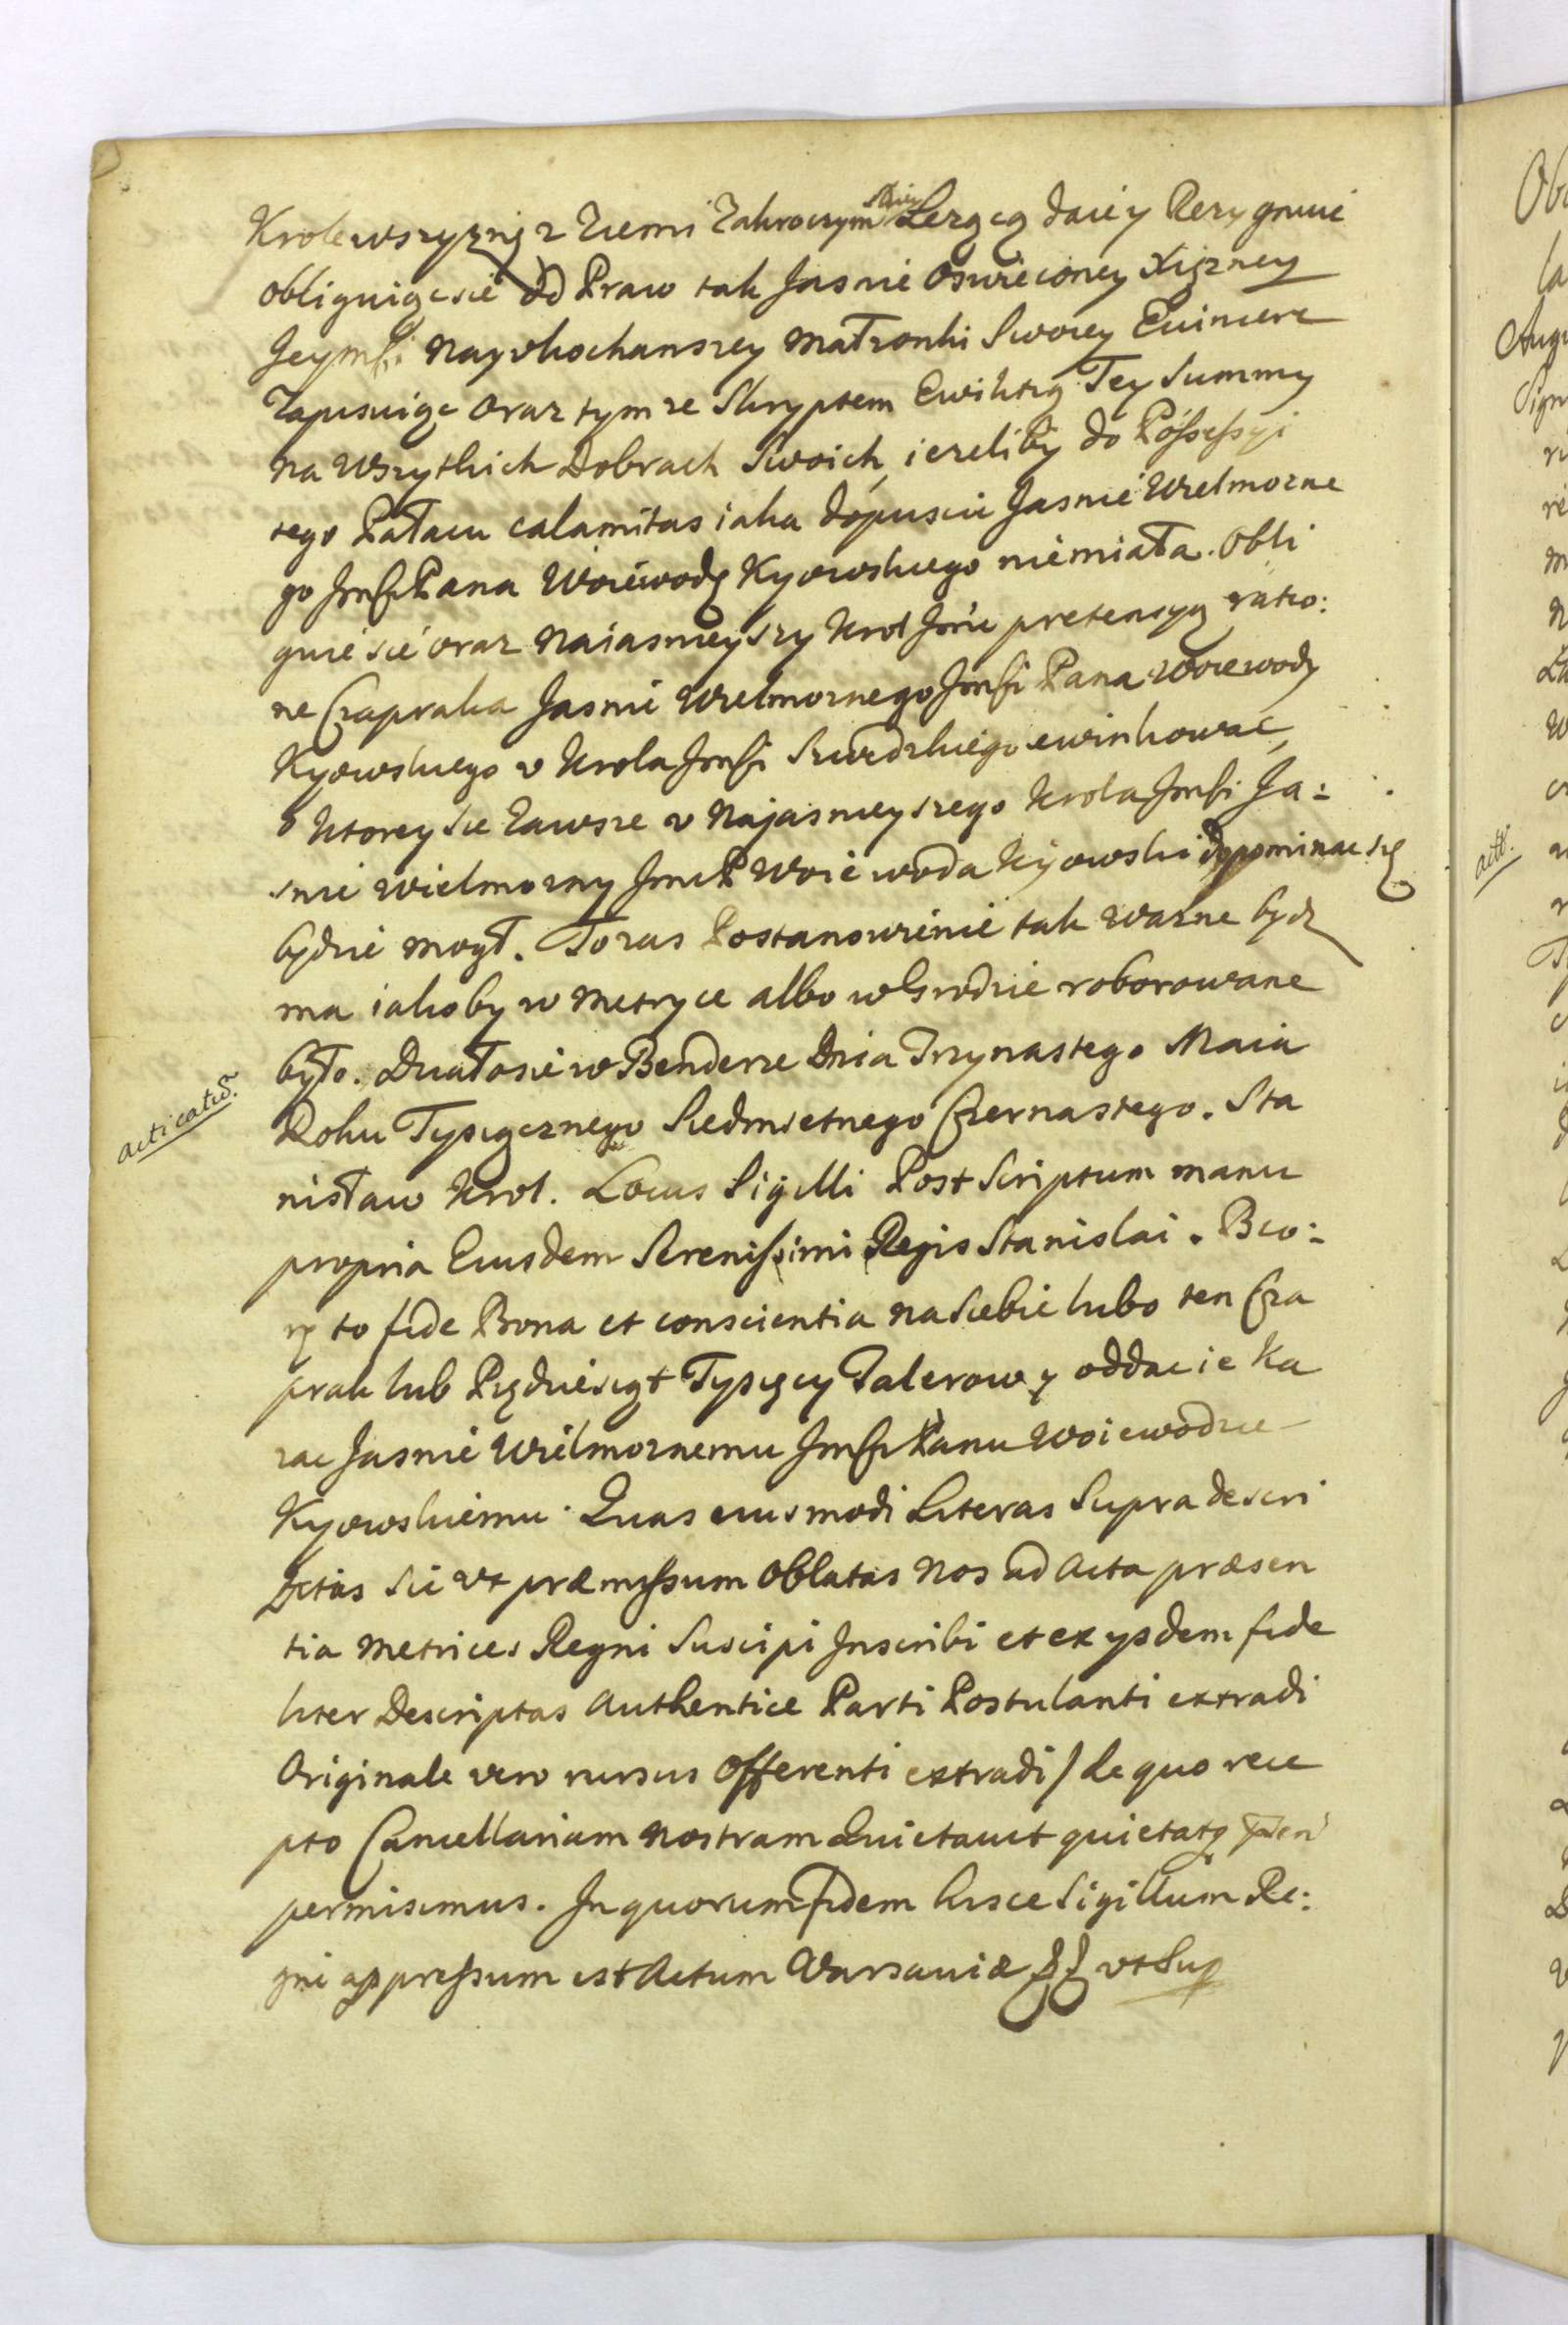 Krolewszyznę z Ziemi Zakroczymskiey Lezącą daie y Rezygnuie
obliguiąc sie do Praw tak Jasnie Oswieconey Xiązney
Jeymsci Nayukochanszey Małzonki Swoiey Euincere
Zapisuiąc oraz tymze Skryptem Ewikcią Tey Summy
na Wszytkich Dobrach Swoich, iezeliby do Possessyi
tego Pałacu calamitas iaka dopuscic Jasnie Wielmozne
go Jmsci Pana Woiewodę Kyowskiego nie miała. Obli
guie sie oraz Naiasnieyszy Krol Jmc pretensyą ratio:
ne Czapraka Jasnie Wielmoznego Jmsci Pana Woiewody
Kyowskiego u Krola Jmsci Szwedzkiego ewinkowac,
o ktorey sie Zawsze u Najasnieyszego Krola Jmsci Ja:
snie Wielmozny Jmc P Woiewoda Kijowski dopominac się
będzie mogł. To zas Postanowienie tak wazne bydz
ma iakoby w Metryce albo w Grodzie roborowane
było. Działo sie w Benderze Dnia Trzynastego Maia
Roku Tysiącznego Siedmsetnego Czternastego. Sta
nisław Krol. Locus Sigilli Post Scriptum manu
propria Eiusdem Serenissimi Regis Stanislai. Bio:
rę to fide Bona et conscientia na Siebie lubo ten Cza
prak lub Piędziesiąt Tysięcy Talerow oddac ie Ka
zac Jasnie Wielmoznemu Jmsci Panu Woiewodzie
Kyowskiemu. Quas eiusmodi Literas Supra descri
ptas Sic ut præmissum Oblatas Nos ad Acta præsen
tia Metrices Regni Suscipi Inscribi et ex ysdem fide
liter Descriptas Authentice Parti Postulanti extradi
Originale vero rursus Offerenti extradi / de quo rece
pto Cancellariam Nostram Quietavit quietatq
permisimus. In quorum fidem hisce Sigillum Re:
gni appressum est Actum Varsaviæ ut Sup
acticatur